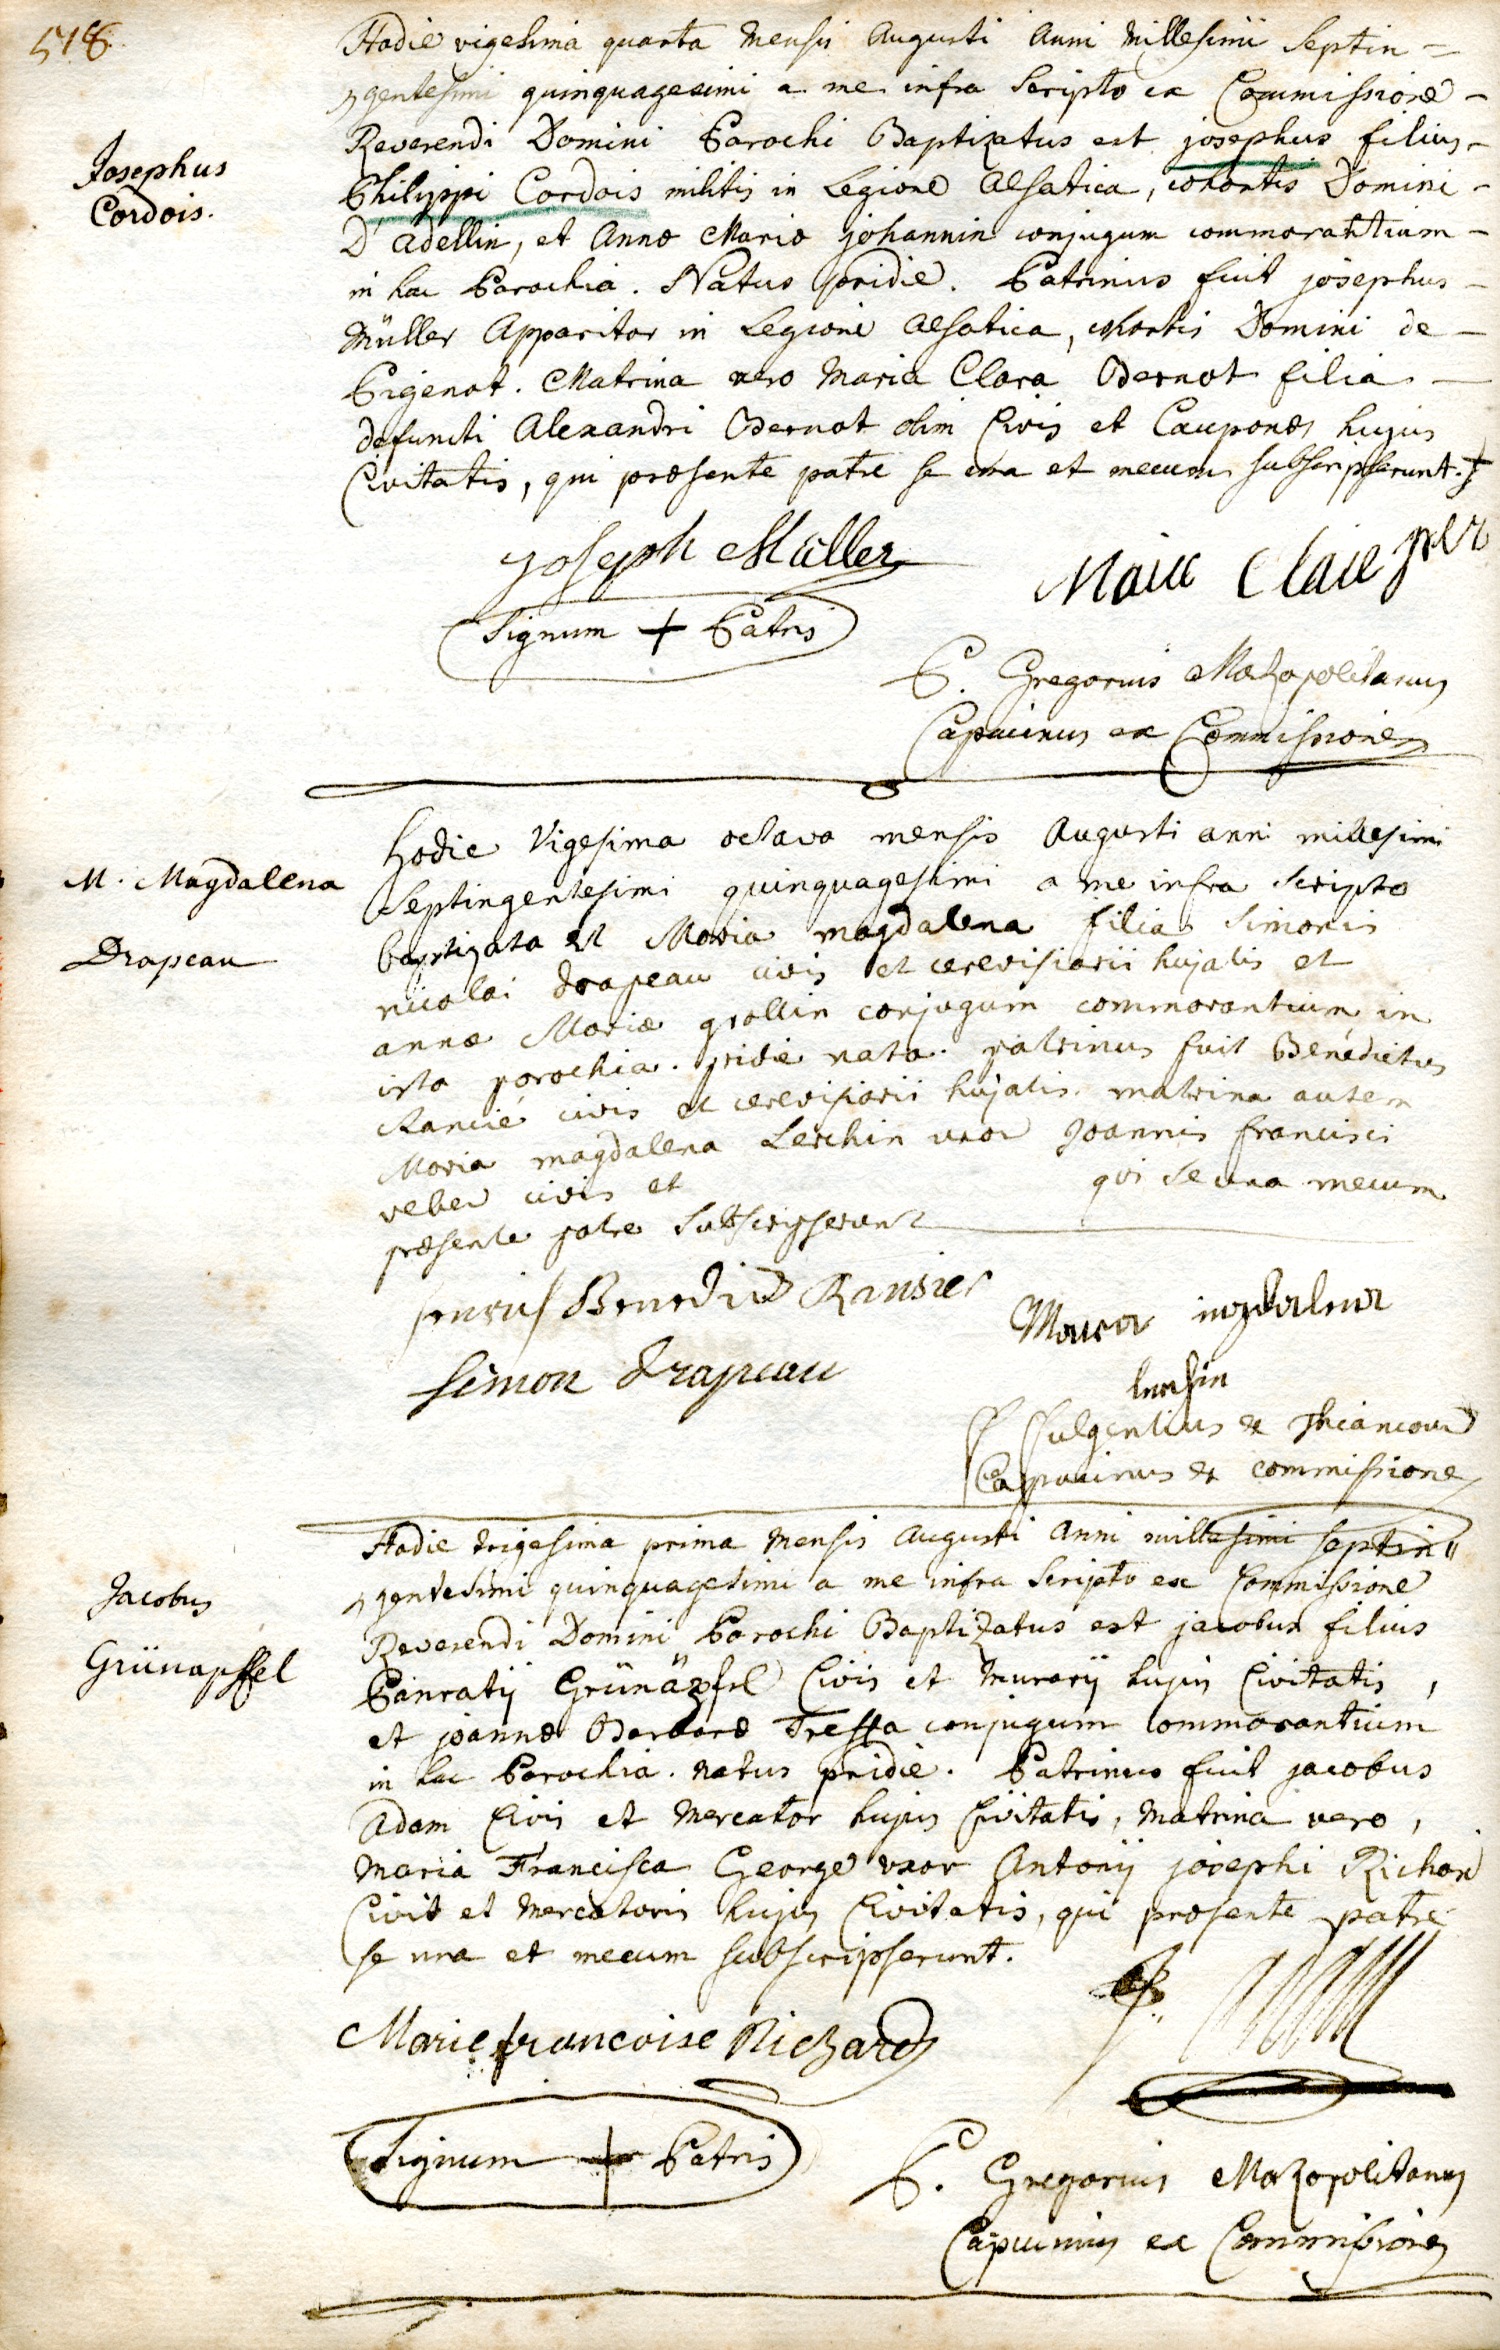 518
Hodie vigesima quarta Mensis Augusti Anni Millesimi Septin=
gentesimi quinquagesimi a me infra Scripto ex Commissione
Reverendi Domini Parochi Baptizatus est josephus filius
Josephus
Cordois.
Philippi Cordois militis in Legione Alsatica, cohortis Domini
D'Adellin, et Annæ Mariæ johannin conjugum commorantium
in hac Parochia. Natus pridie. Patrinus fuit josephus
Müller Apparitor in Legione Alsatica, cohortis Domini de
Pigenot. Matrina vero Maria Clara Bernot filia
defuncti Alexandri Bernot olim Civis et Cauponis hujus
Civitatis, qui præsente patre se una et mecum subscripserunt.
Joseph Müller
Marie Claire
Signum + Patris
P. Gregorius Mazopolitanus
Capucinus ex Commissione
hodie Vigesima octava mensis Augusti anni millesimi
M. Magdalena
Drapeau
Septingentesimi quinquagesimi a me infra scripto
baptizata est Maria magdalena filia Simonis
nicolai drapeau civis et cerevisiarii hujatis et
annæ Mariæ grollin conjugum commorantium in
ista parochia. pridie nata. patrinus fuit Benedictus
Rancié civis et cerevisiarii hujatis. matrina autem
Maria magdalena Lerchin uxor Joannis francisci
veber civis et qui se una mecum
præsente patre subscripserunt
Benedict Ransier
Maria magdalena
lerchin
Simon drapeau
P fulgentius ex Thiancour
Capucinus ex commissione
Hodie trigesima prima Mensis Augusti Anni millesimi septin"
gentesimi quinquagesimi a me infra Scripto ex Commissione
Jacobus
Grünapffel
Reverendi Domini Parochi Baptizatus est jacobus filius
Panratij Grünäpfel Civis et Murarij hujus Civitatis,
et joannæ Barbaræ Treffa conjugum commorantium
in hac Parochia. natus pridie. Patrinus fuit jacobus
Adam Civis et Mercator hujus Civitatis, Matrina vero,
Maria Francisca George uxor Antonij josephi Richard
Civis et Mercatoris hujus Civitatis, qui præsente patre
se una et mecum subscripserunt.
Marie francoise Richard
Signum + Patris
P. Gregorius Mazopolitanus
Capucinus ex Commissione